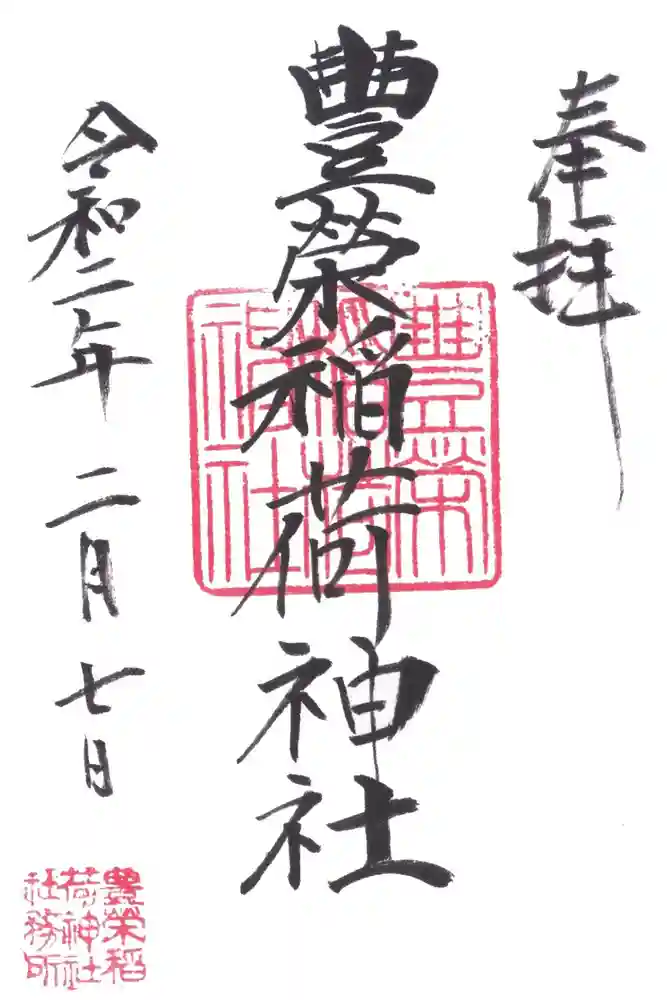 奉拝
豊榮稲荷神社
令和二年二月七日
豊榮
稲荷
神社
豊榮稲
荷神社
社務所